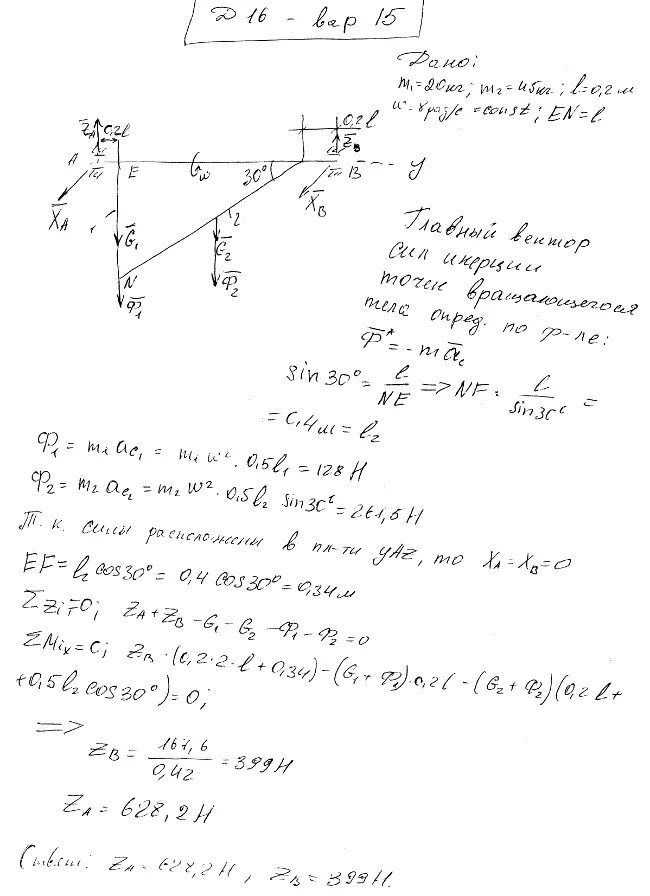 Д 16 - вар 15
Дано:
m₁=20кг; m₂=45кг; l=0,2м
ω=8рад/с =const; EN=l
Z̄A 0,2l
0,2l
Z̄B
A E ω 30° B y
X̄A
X̄B
1
2
Ḡ₁
Ḡ₂
N
Φ̄₂
Φ̄₁
Главный вектор
сил инерции
точек вращающегося
тела опред. по ф-ле:
Φ̄* = - m āc
sin30° = l/NE => NF = l/sin30° =
= 0,4м = l₂
Φ₁ = m₁ ac₁ = m₁ ω² · 0,5l₁ = 128 Н
Φ₂ = m₂ ac₂ = m₂ ω² · 0,5l₂ sin30° = 261,5 Н
Т.к. силы расположены в пл-ти yAz, то XA = XB = 0
EF = l₂ cos30° = 0,4 cos30° = 0,34м
ΣZi = 0; ZA + ZB - G₁ - G₂ - Φ₁ - Φ₂ = 0
ΣMix = 0; ZB · (0,2·2·l + 0,34) - (G₁ + Φ₁)·0,2l - (G₂ + Φ₂)(0,2l +
+ 0,5l₂ cos30°) = 0;
=>
ZB = 167,6/0,42 = 399Н
ZA = 627,2 Н
Ответ: ZA = 627,2Н, ZB = 399Н.